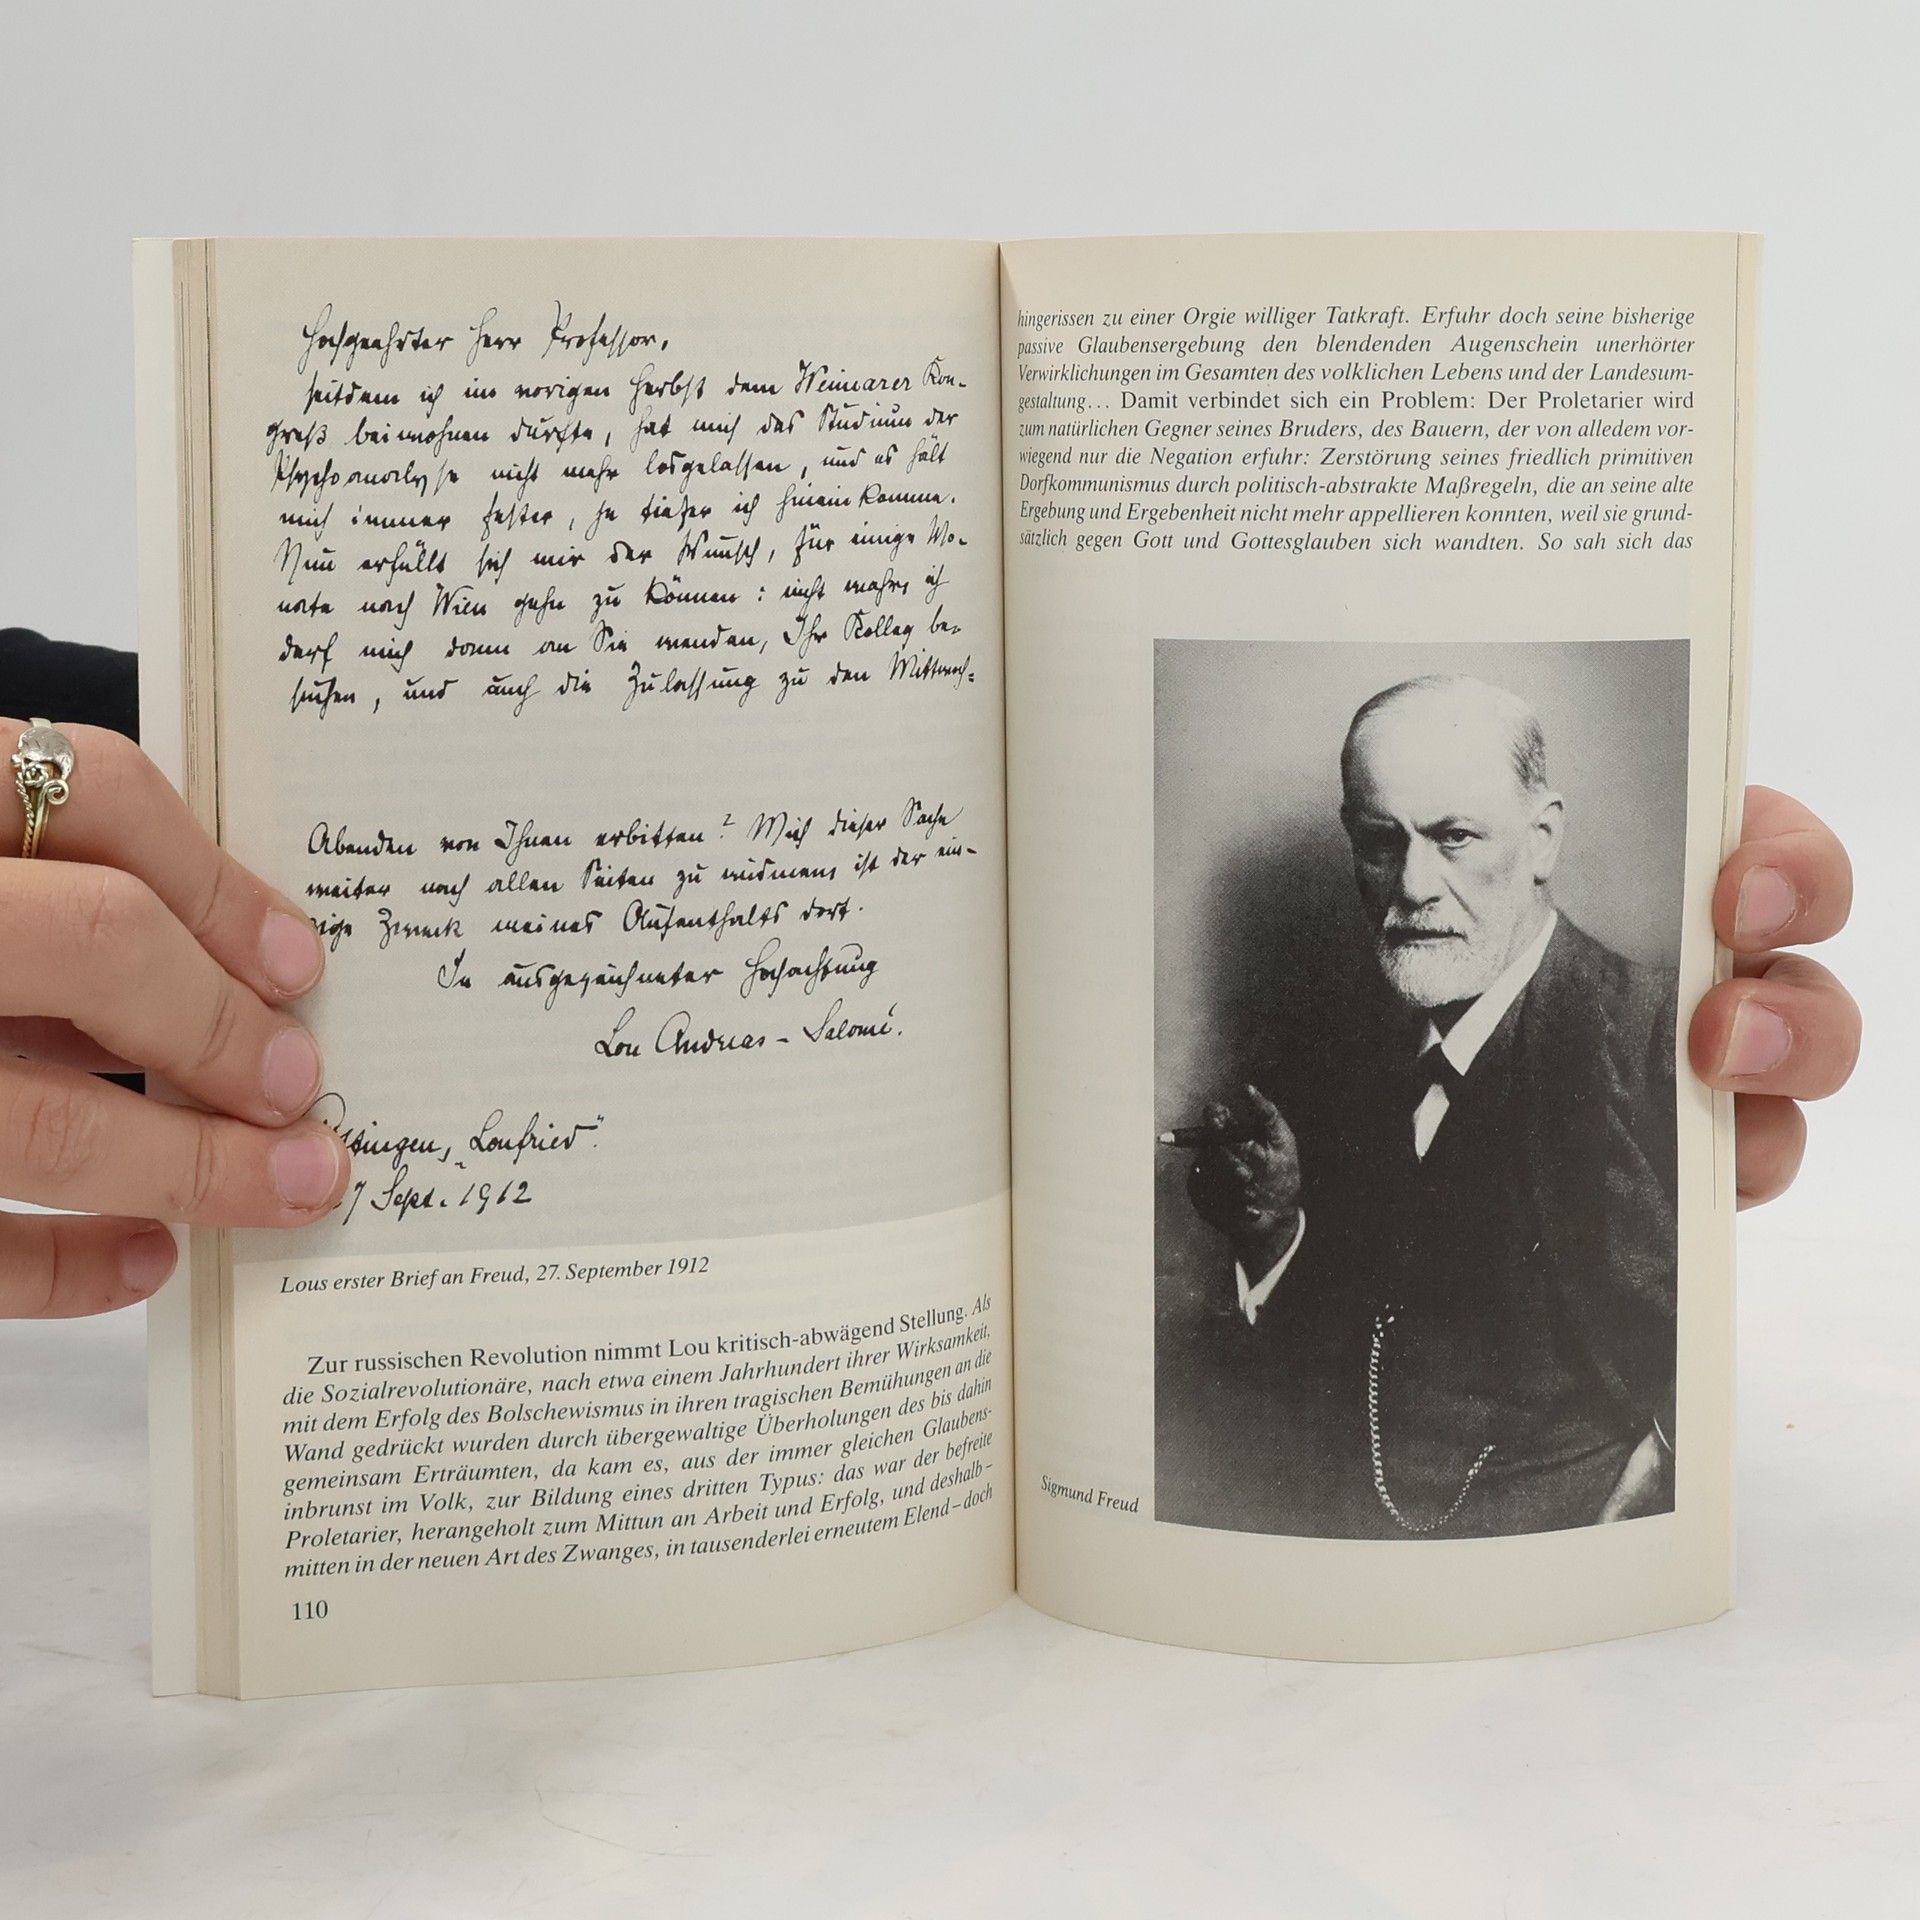 Hochgeehrter Herr Professor,
seitdem ich im vorigen Herbst dem Weimarer Kon-
greß beiwohnen durfte, hat mich das Studium der
Psychoanalyse nicht mehr losgelassen, und es hält
mich immer fester, je tiefer ich hinein komme.
Nun erfüllt sich mir der Wunsch, für einige Mo-
nate nach Wien gehn zu können: nicht wahr, ich
darf mich dann an Sie wenden, Ihr Kolleg be-
suchen, und auch die Zulassung zu den Mittwoch-
Abenden von Ihnen erbitten? Mich dieser Sache
weiter nach allen Seiten zu widmen, ist der ein-
zige Zweck meines Aufenthalts dort.
In ausgezeichneter Hochachtung
Lou Andreas-Salomé.
"Loufried".
7 Sept. 1912
Lous erster Brief an Freud, 27. September 1912
Zur russischen Revolution nimmt Lou kritisch-abwägend Stellung. Als
die Sozialrevolutionäre, nach etwa einem Jahrhundert ihrer Wirksamkeit,
mit dem Erfolg des Bolschewismus in ihren tragischen Bemühungen an die
Wand gedrückt wurden durch übergewaltige Überholungen des bis dahin
gemeinsam Erträumten, da kam es, aus der immer gleichen Glaubens-
inbrunst im Volk, zur Bildung eines dritten Typus: das war der befreite
Proletarier, herangeholt zum Mittun an Arbeit und Erfolg, und deshalb –
mitten in der neuen Art des Zwanges, in tausenderlei erneutem Elend – doch
110
hingerissen zu einer Orgie williger Tatkraft. Erfuhr doch seine bisherige
passive Glaubensergebung den blendenden Augenschein unerhörter
Verwirklichungen im Gesamten des volklichen Lebens und der Landesum-
gestaltung... Damit verbindet sich ein Problem: Der Proletarier wird
zum natürlichen Gegner seines Bruders, des Bauern, der von alledem vor-
wiegend nur die Negation erfuhr: Zerstörung seines friedlich primitiven
Dorfkommunismus durch politisch-abstrakte Maßregeln, die an seine alte
Ergebung und Ergebenheit nicht mehr appellieren konnten, weil sie grund-
sätzlich gegen Gott und Gottesglauben sich wandten. So sah sich das
Sigmund Freud